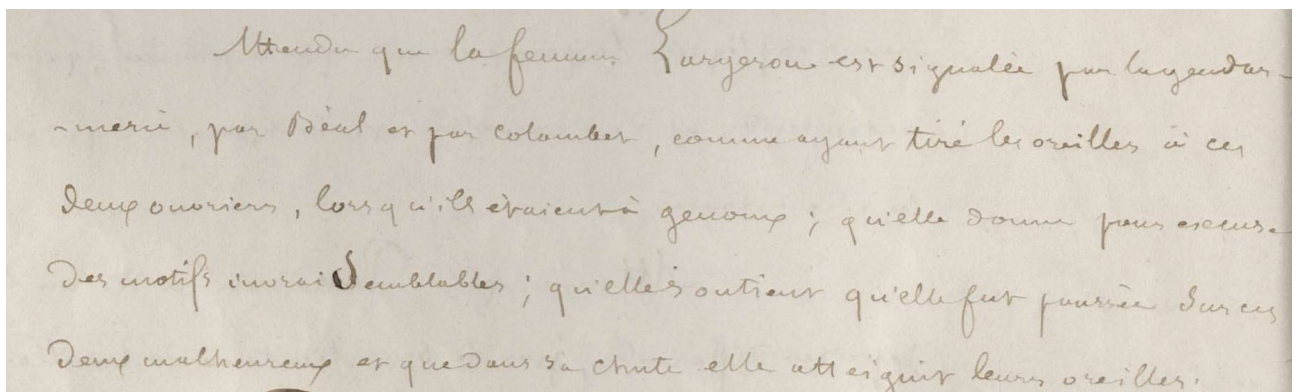 Attendu que la femme Largeron est signalée par la gendar-
-merie, par Béal et par Colombet, comme ayant tiré les oreilles à ces
deux ouvriers, lorsqu'ils étaient à genoux ; qu'elle donne pour excuse
des motifs invraisemblables ; qu'elle soutient qu'elle fut poussée sur ces
deux malheureux et que dans sa chute elle atteignit leurs oreilles.